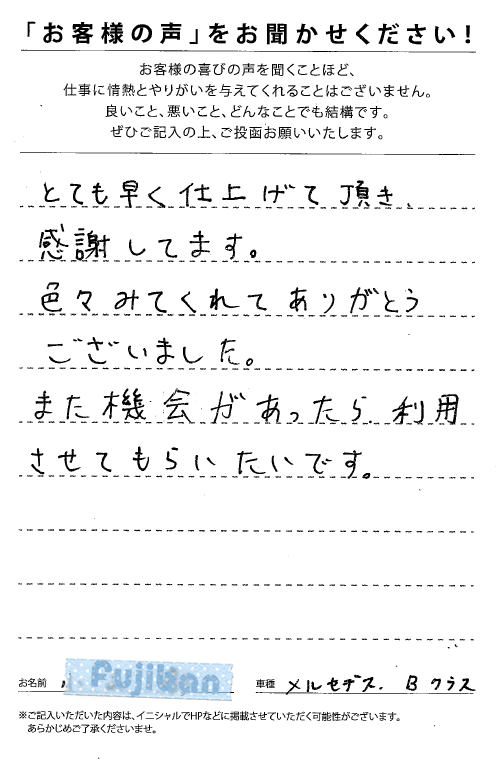 「お客様の声」をお聞かせください！
お客様の喜びの声を聞くことほど、
仕事に情熱とやりがいを与えてくれることはございません。
良いこと、悪いこと、どんなことでも結構です。
ぜひご記入の上、ご投函お願いいたします。
とても早く仕上げて頂き、
感謝してます。
色々みてくれてありがとう
ございました。
また機会があったら、利用
させてもらいたいです。
お名前 Fujikan 車種 メルセデス. B クラス
※ご記入いただいた内容は、イニシャルでHPなどに掲載させていただく可能性がございます。
あらかじめご了承くださいませ。